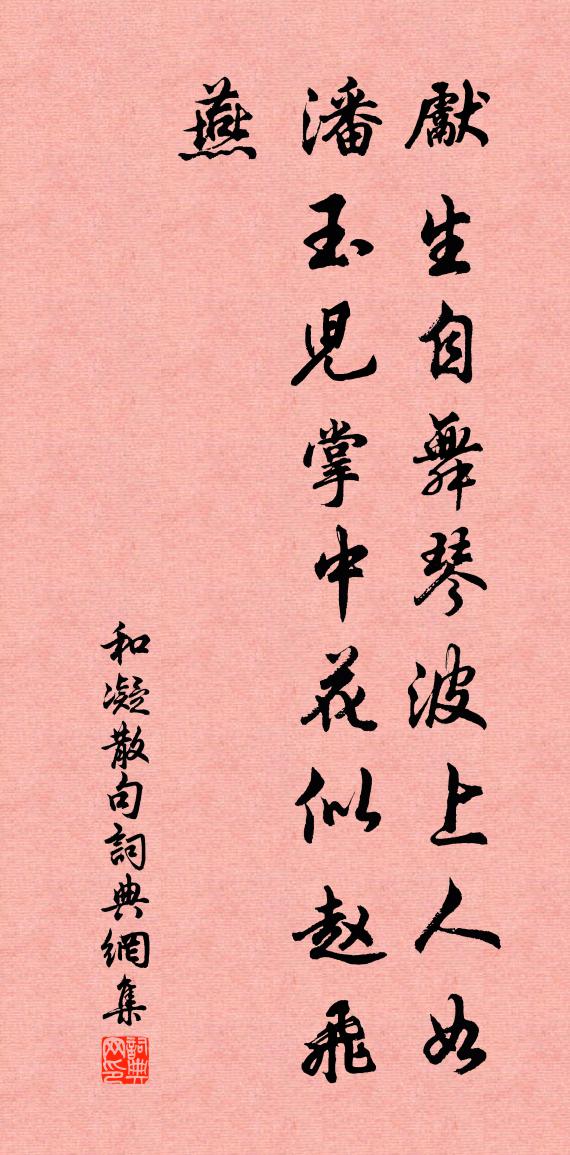 獻生自舞琴波上人如
潘玉兒掌中花似赵飛
燕
和凝散句詞典網集
詞典网印